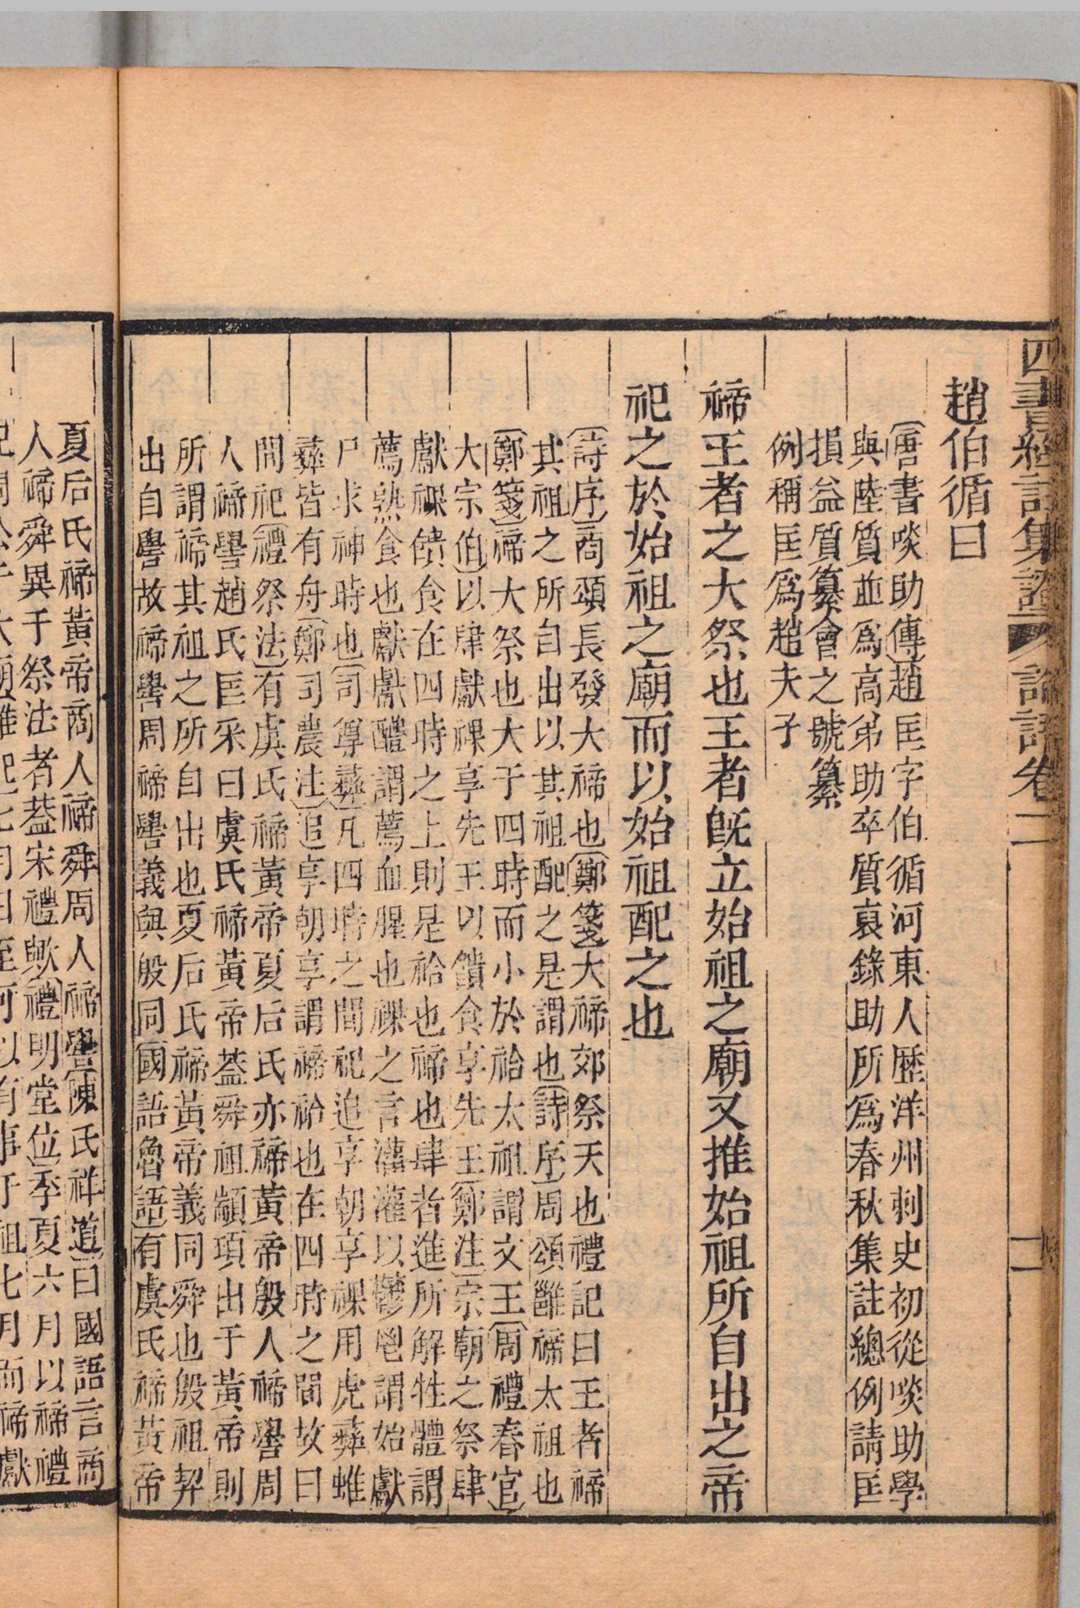 四書經註集證 論語卷二 二
趙伯循曰
唐書啖助傳趙匡字伯循河東人歷洋州刺史初從啖助學
與陸質並爲高弟助卒質裒錄助所爲春秋集註總例請匡
損益質纂會之號纂
例稱匡爲趙夫子
禘王者之大祭也王者旣立始祖之廟又推始祖所自出之帝
祀之於始祖之廟而以始祖配之也
詩序商頌長發大禘也鄭箋大禘郊祭天也禮記曰王者禘
其祖之所自出以其祖配之是謂也詩序周頌雝禘太祖也
鄭箋禘大祭也大于四時而小於祫太祖謂文王周禮春官
大宗伯以肆獻祼享先王以饋食享先王鄭注宗廟之祭肆
獻祼饋食在四時之上則是祫也禘也肆者進所解牲體謂
薦熟食也獻獻醴謂薦血腥也祼之言灌灌以鬱鬯謂始獻
尸求神時也司尊彝凡四時之間祀追享朝享祼用虎彝蜼
彝皆有舟鄭司農注追享朝享謂禘祫也在四時之間故曰
間祀禮祭法有虞氏禘黃帝夏后氏亦禘黃帝殷人禘嚳周
人禘嚳趙氏匡采曰虞氏禘黃帝葢舜祖顓頊出于黃帝則
所謂禘其祖之所自出也夏后氏禘黃帝義同舜也殷祖契
出自嚳故禘嚳周禘嚳義與殷同國語魯語有虞氏禘黃帝
夏后氏禘黃帝商人禘舜周人禘嚳陳氏祥道曰國語言商
人禘舜異于祭法者葢宋禮歟禮明堂位季夏六月以禘禮
祀周公于大廟雜記七月日至可以有事于祖七月而禘獻